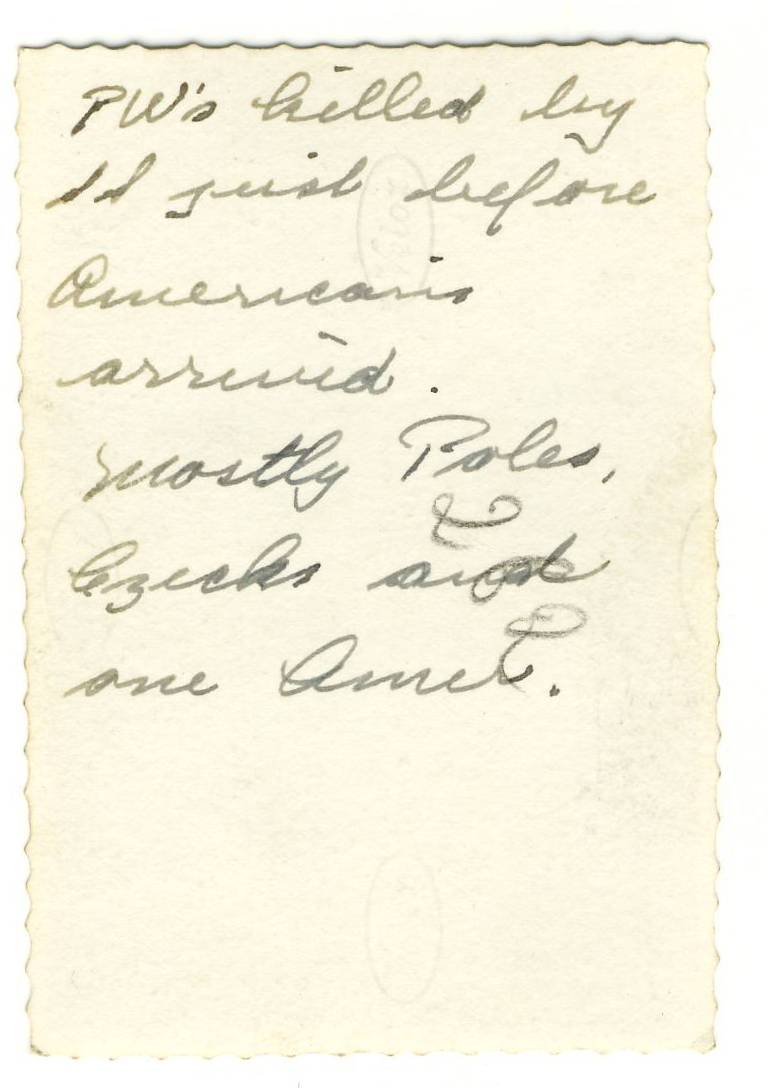 PW's killed by
SS just before
Americans
arrived.
Mostly Poles,
Czecks and
one Amer.
Velox